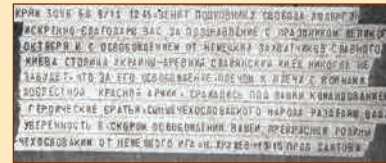 КРЯЖ 30УБ 68 8/11 1245=ЗЕНИТ ПОДКОВНИКУ СВОБОДА ЛЮДВИГУ=
ИСКРЕННО БЛАГОДАРЮ ВАС ЗА ПОЗДРАВЛЕНИЕ С ПРАЗДНИКОМ ВЕЛИКОГО
ОКТЯБРЯ И С ОСВОБОЖДЕНИЕМ ОТ НЕМЕЦКИХ ЗАХВАТЧИКОВ СЛАВНОГО
КИЕВА СТОЛИЦА УКРАИНЫ-ДРЕВНИЙ СЛАВЯНСКИЙ КИЕВ НИКОГДА НЕ
ЗАБУДЕТ-ЧТО ЗА ЕГО ОСВОБОЖДЕНИЕ ПЛЕЧОМ К ПЛЕЧУ С ВОИНАМИ
ДОБЛЕСТНОЙ КРАСНОЙ АРМИИ СРАЖАЛИСЬ ПОД ВАШИМ КОМАНДОВАНИЕМ
ГЕРОИЧЕСКИЕ БРАТЬЯ-СЫНЫ ЧЕХОСЛОВАЦКОГО НАРОДА РАЗДЕЛЯЮ ВАШУ
УВЕРЕННОСТЬ В СКОРОМ ОСВОБОЖДЕНИИ ВАШЕЙ ПРЕКРАСНОЙ РОДИНЫ
ЧЕХОСЛОВАКИИ ОТ НЕМЕЦКОГО ИГА=Н.ХРУЩЕВ